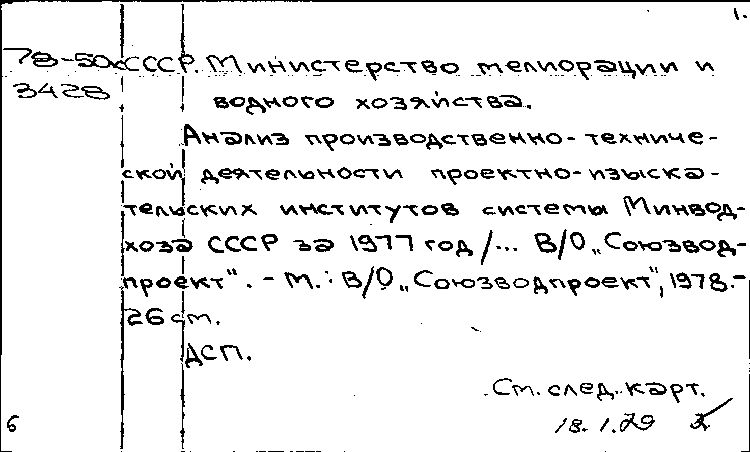 1.
78-50к СССР. Министерство мелиорации и
3428 водного хозяйства.
Анализ производственно-техниче-
ской деятельности проектно-изыска-
тельских институтов системы Минвод-
хоза СССР за 1977 год /... В/О „Союзвод-
проект". - М.: В/О „Союзводпроект", 1978.-
26 см.
ДСП.
См. след. карт.
6 18.1.29